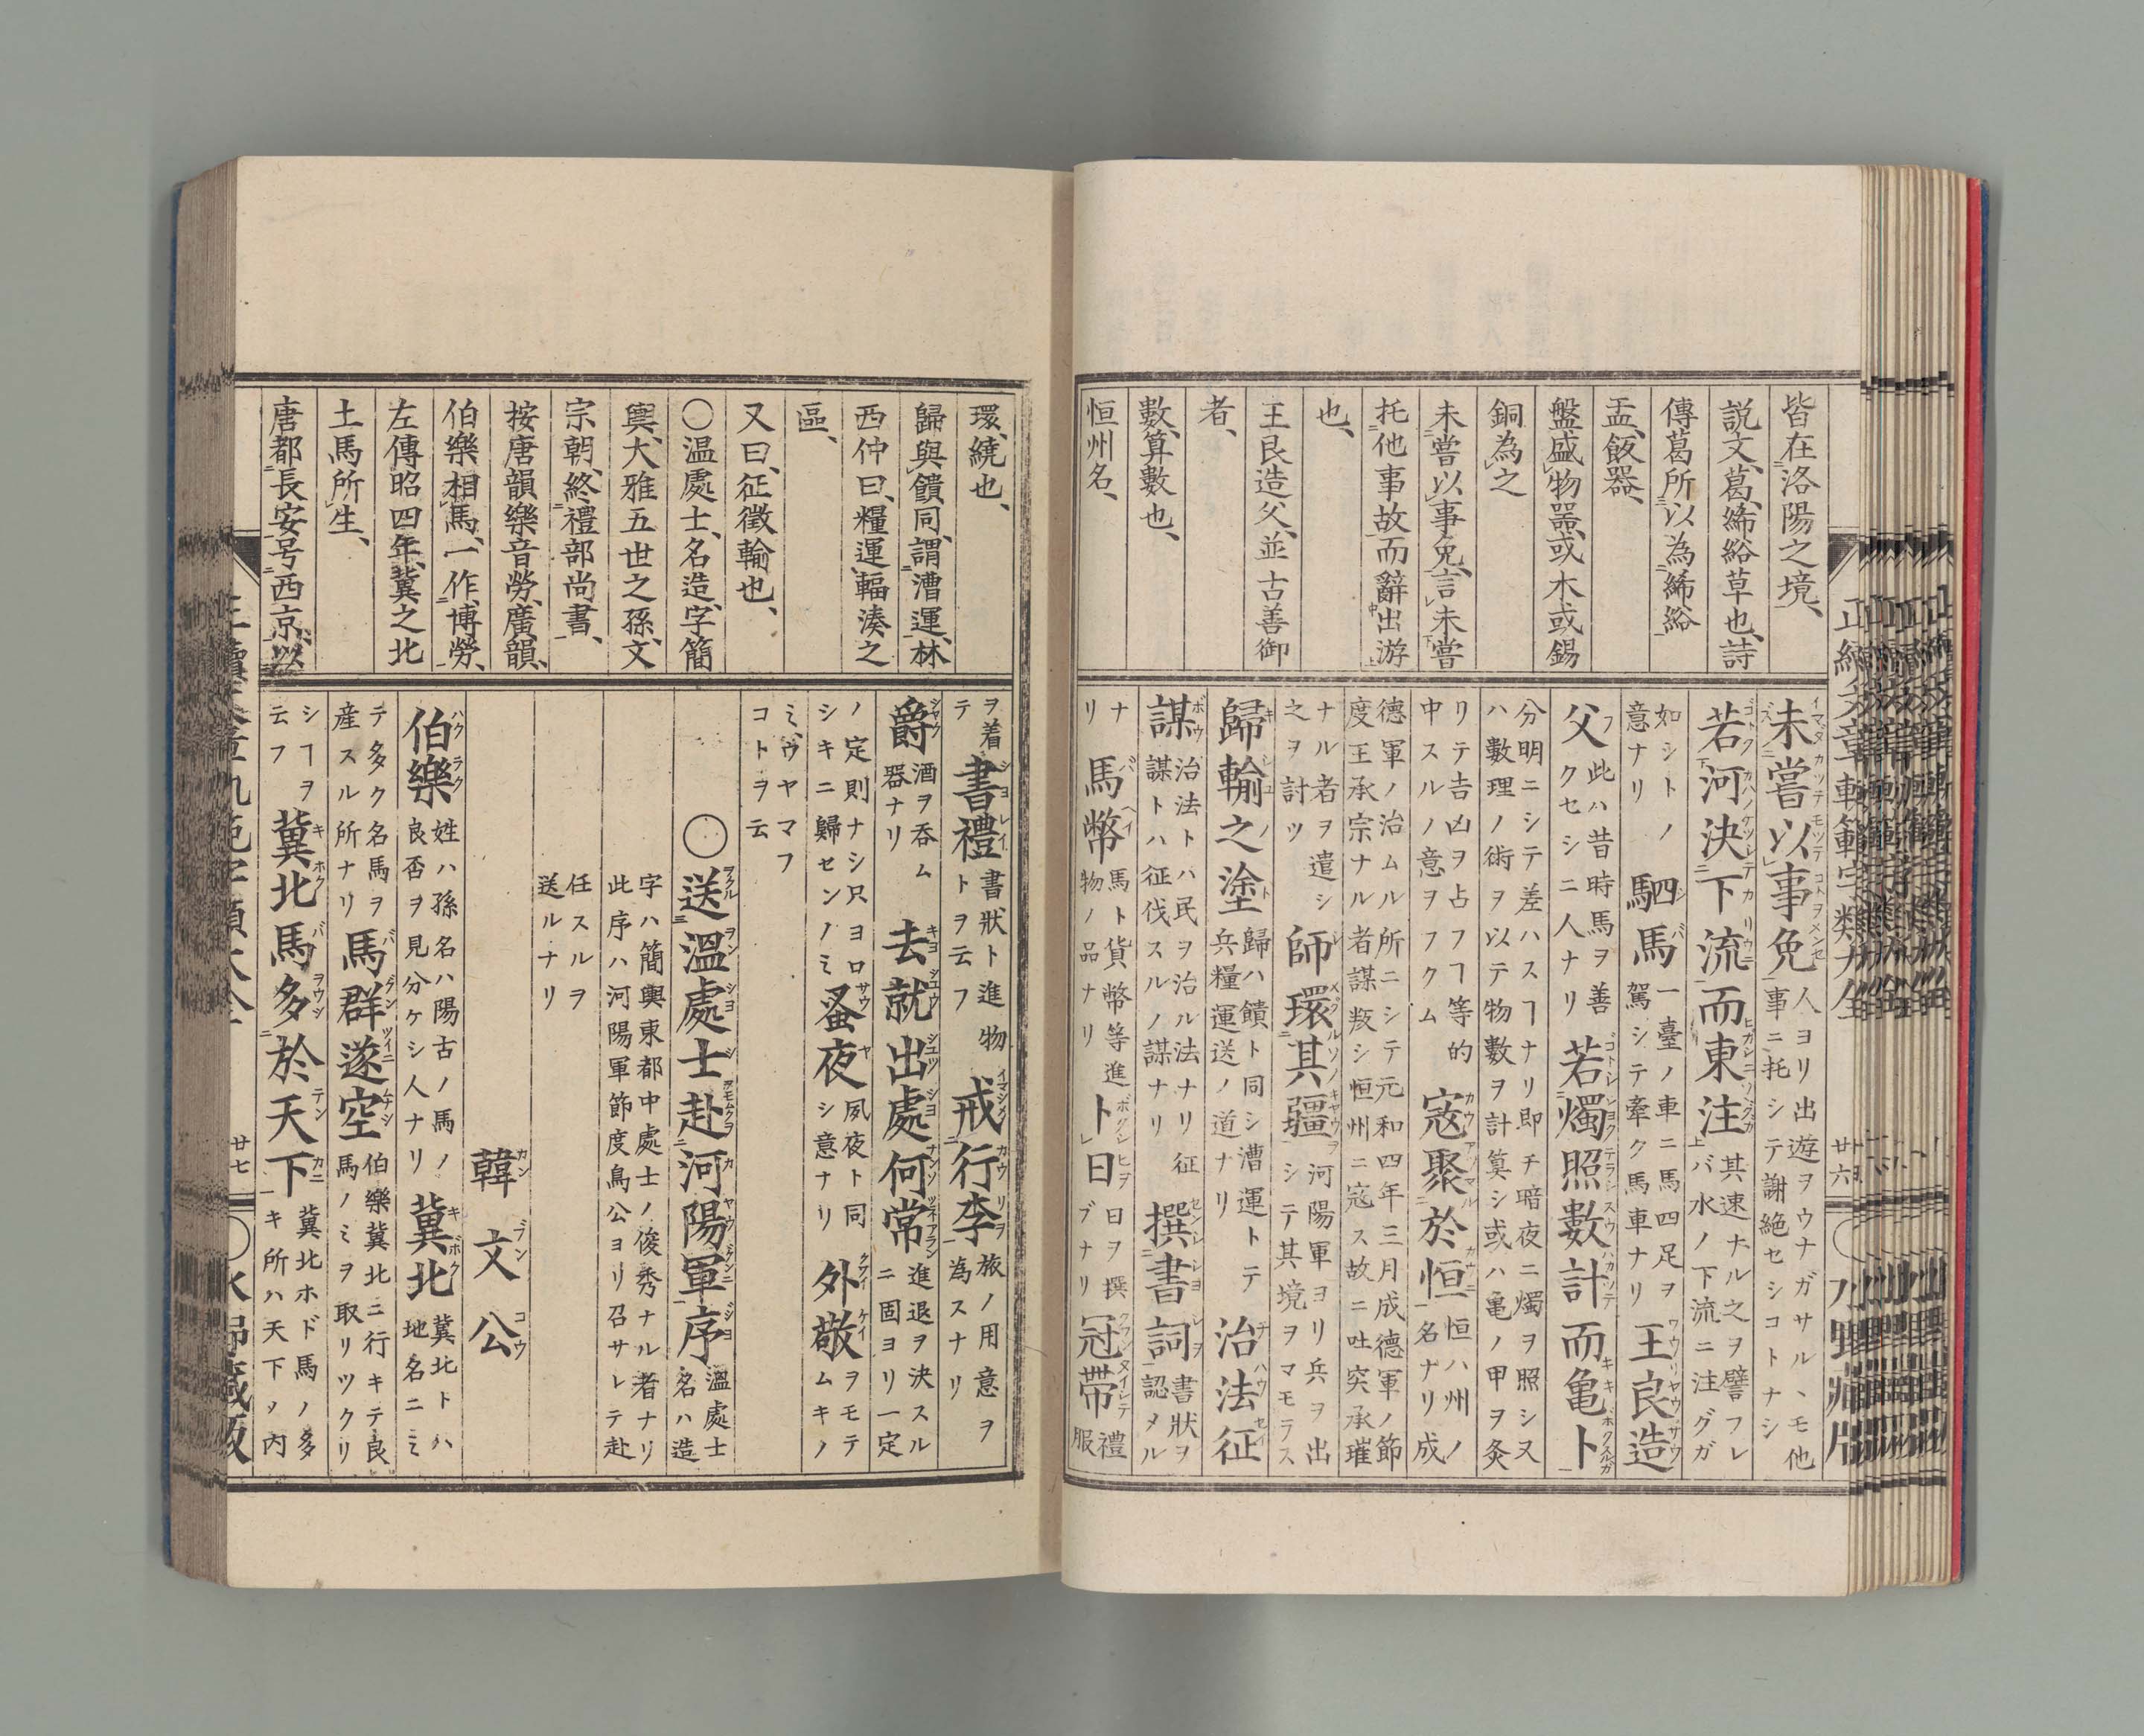 皆在洛陽之境、
説文、葛、絺綌草也、詩
傳葛所以為絺綌
盂、飯器、
盤、盛物噐、或木或錫
銅為之
未嘗以事免、言未嘗
托他事故而辭出游
也、
王良造父、並古善御
者、
數、算數也、
恒州名、
未嘗以事免 人ヨリ出遊ヲウナガサルヽモ他
事ニ托シテ謝絶セシコトナシ
若河決下流而東注 其速ナル之ヲ譬フレ
バ水ノ下流ニ注グガ
如シトノ
意ナリ
駟馬 一臺ノ車ニ馬四足ヲ
駕シテ牽ク馬車ナリ
王良造
父 此ハ昔時馬ヲ善
クセシニ人ナリ
若燭照數計而亀卜
分明ニシテ差ハスヿナリ即チ暗夜ニ燭ヲ照シ又
ハ數理ノ術ヲ以テ物數ヲ計算シ或ハ亀ノ甲ヲ灸
リテ吉凶ヲ占フヿ等的
中スルノ意ヲフクム
寇聚於恒 恒ハ州ノ
名ナリ成
德軍ノ治ムル所ニシテ元和四年三月成德軍ノ節
度王承宗ナル者謀叛シ恒州ニ寇ス故ニ吐突承璀
ナル者ヲ遣シ
之ヲ討ツ
師環其疆 河陽軍ヨリ兵ヲ出
シテ其境ヲマモラス
歸輸之塗 歸ハ饋ト同シ漕運トテ
兵糧運送ノ道ナリ
治法征
謀 治法トハ民ヲ治ル法ナリ征
謀トハ征伐スルノ謀ナリ
撰書詞 書狀ヲ
認メル
ナ
リ
馬幣 馬ト貨幣等進
物ノ品ナリ
卜日 日ヲ撰
ブナリ
冠帶 禮
服
廿六
環、繞也、
歸與饋同、謂漕運、林
西仲曰、糧運輻湊之
區、
又曰、征徵輸也、
〇温處士、名造、字簡
輿、大雅五世之孫、文
宗朝、終禮部尚書、
按唐韻樂音勞、廣韻、
伯樂相馬、一作博勞、
左傳昭四年、冀之北
土馬所生、
唐都長安号西京、以
ヲ着
テ
書禮 書狀ト進物
トヲ云フ
戒行李 旅ノ用意ヲ
為スナリ
爵 酒ヲ呑ム
器ナリ
去就出處何常 進退ヲ決スル
ニ固ヨリ一定
ノ定則ナシ只ヨロ
シキニ歸センノミ
蚤夜 夙夜ト同
シ意ナリ
外敬 ヲモテ
ムキノ
ミウヤマフ
コトヲ云
〇送溫處士赴河陽軍序 溫處士
名ハ造
字ハ簡輿東都中處士ノ俊秀ナル者ナリ
此序ハ河陽軍節度烏公ヨリ召サレテ赴
任スルヲ
送ルナリ
韓文公
伯樂 姓ハ孫名ハ陽古ノ馬ノ
良否ヲ見分ケシ人ナリ
冀北 冀北トハ
地名ニミ
テ多ク名馬ヲ
産スル所ナリ
馬群遂空 伯樂冀北ニ行キテ良
馬ノミヲ取リツクリ
シヿヲ
云フ
冀北馬多於天下 冀北ホド馬ノ多
キ所ハ天下ノ內
廿七